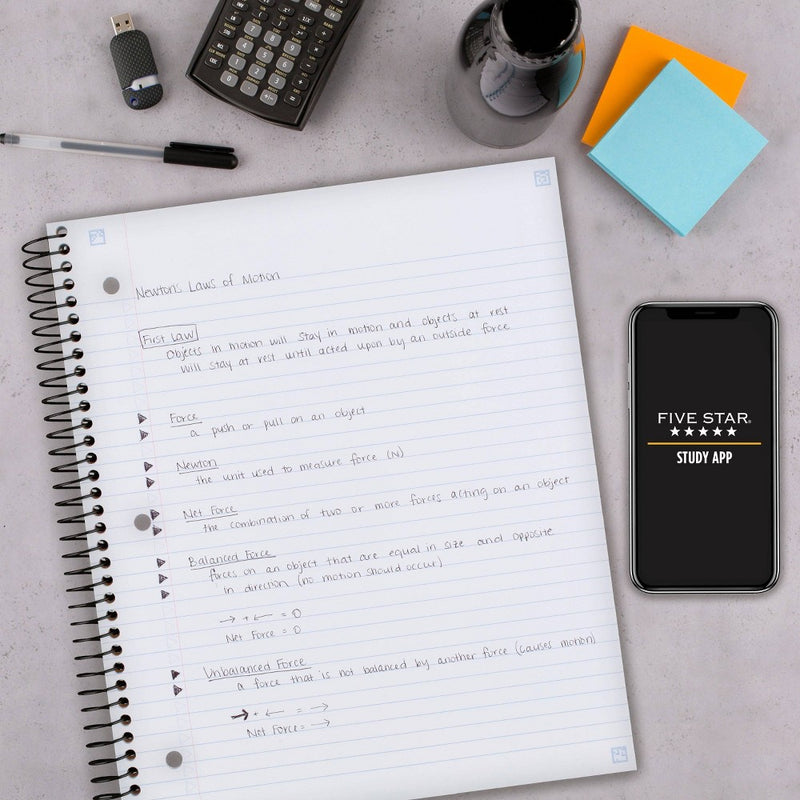 Newton's Laws of Motion
First Law
Objects in motion will stay in motion and objects at rest
will stay at rest until acted upon by an outside force
Force
a push or pull on an object
Newton
the unit used to measure force (N)
Net Force
the combination of two or more forces acting on an object
Balanced Force
forces on an object that are equal in size and opposite
in direction (no motion should occur)
→ + ← = 0
Net Force = 0
Unbalanced Force
a force that is not balanced by another force (causes motion)
→ + ← = →
Net Force = →
FIVE STAR®
★★★★★
STUDY APP